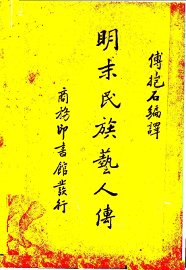 傅抱石編譯
明末民族藝人傳
商務印書館發行